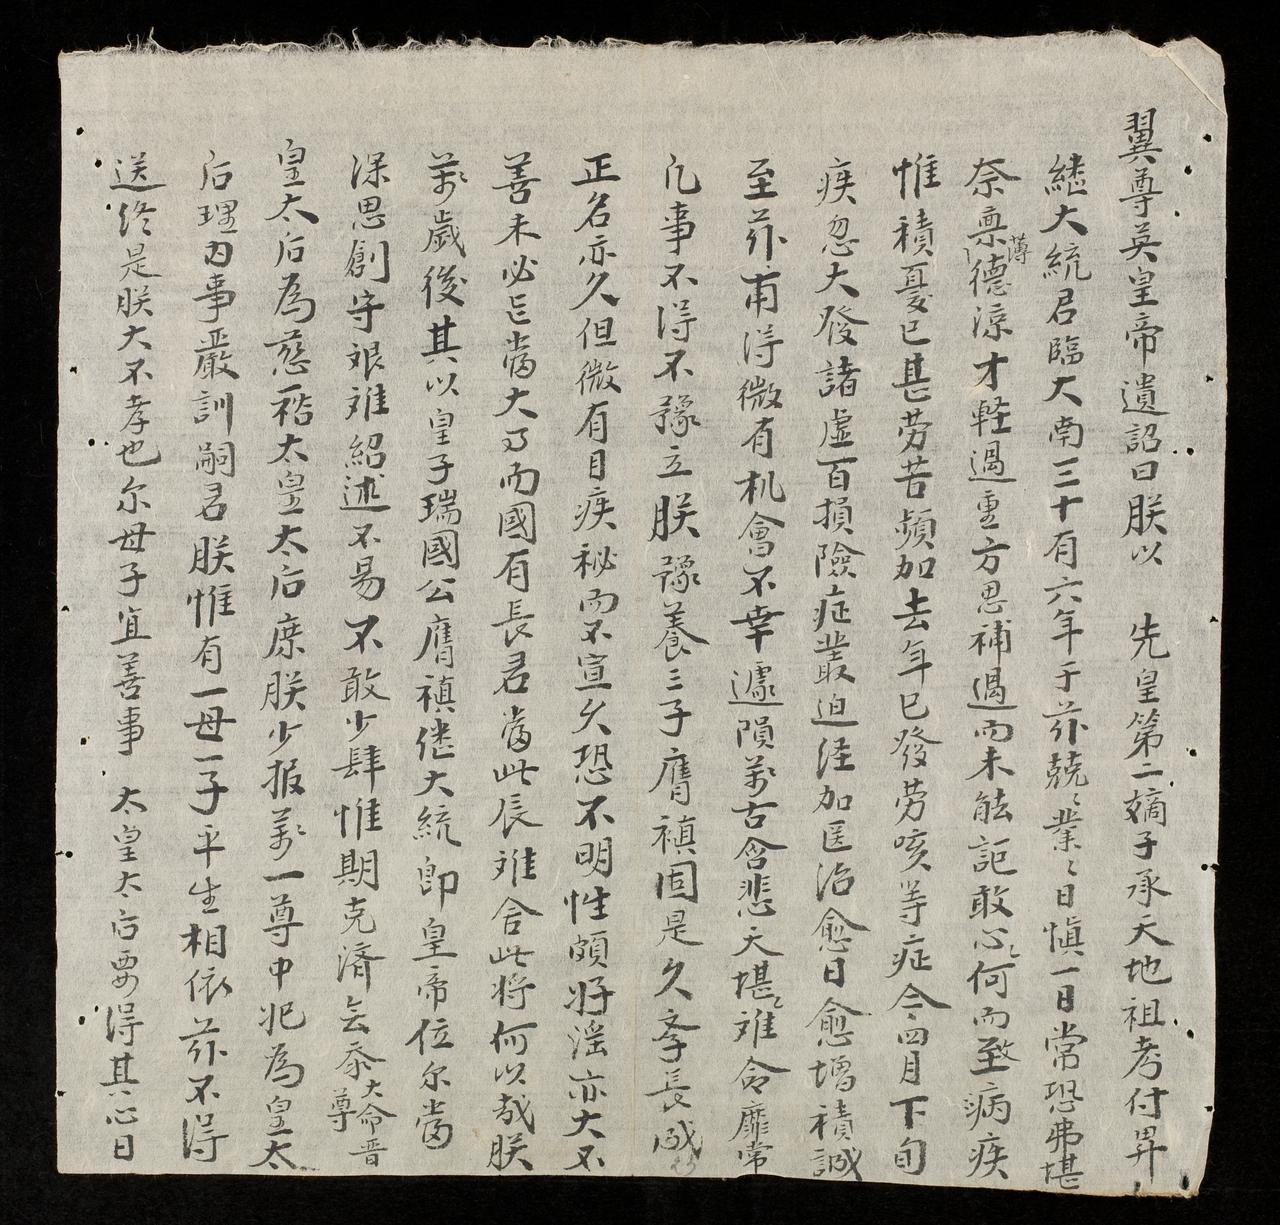 翼尊英皇帝遺詔曰朕以　先皇第二嫡子承天地祖考付畀
継大統君臨大南三十有六年于茲兢〻業〻日慎一日常恐弗堪
奈稟薄德涼才軽過重方思補過而未能詎敢心〻何而致病疾
惟積憂已甚劳苦頻加去年已發劳咳等症今四月下旬
疾忽大發諸虛百損險症叢迫汪加医治愈日愈增積誠
至茲甫得微有机會不幸遽隕萬古含悲天堪〻难合靡常
凢事不得不豫立朕豫養三子膺禛固是久孚長成
正名亦久但微有目疾祕而不宣久恐不明性頗好滛亦大不
善未必㠯當大事而國有長君當此辰难舍此将何以哉朕
萬歲後其以皇子瑞國公膺禛継大統即皇帝位尔當
深思創守艰难紹述不易不敢少肆惟期克済去忝大命晋尊
皇太后為慈裕太皇太后庶朕少报萬一尊中妃為皇太
后理內事嚴訓嗣君朕惟有一母一子平生相依茲不得
送终是朕大不孝也尔母子宜善事　太皇太后要得其心日